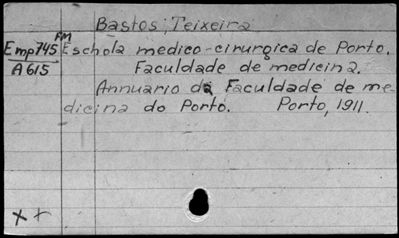 Bastos, Teixeira
FM
Emp745 Eschola medico-cirurgica de Porto.
A615 Faculdade de medicina.
Annuario da Faculdade de me-
dicina do Porto. Porto, 1911.